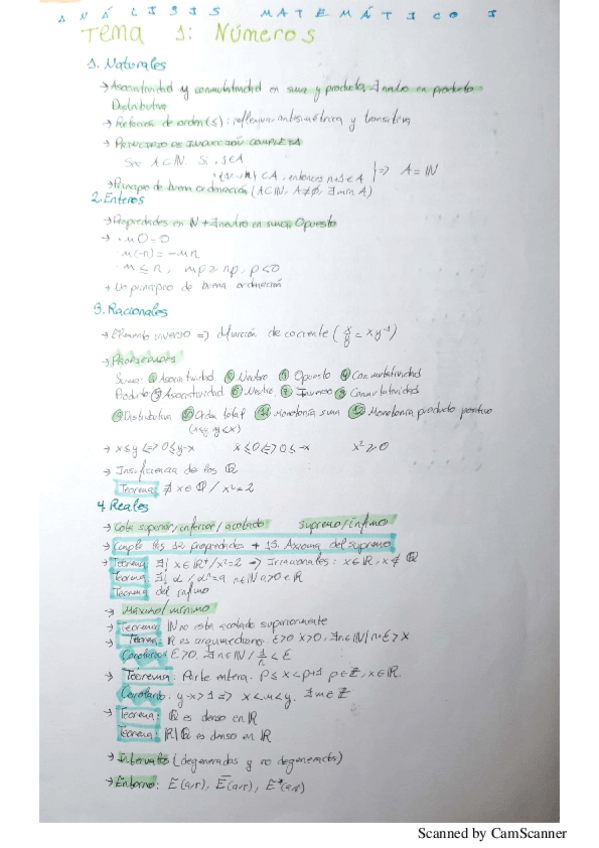 ANÁLISIS MATEMÁTICO I
Tema 1: Números
1. Naturales
→ Asociatividad y conmutatividad en suma y producto, ∃ neutro en producto
Distributiva
→ Relación de orden(s): reflexiva, antisimétrica y transitiva
→ PRINCIPIO DE INDUCCIÓN COMPLETA
Sea A⊂ℕ. Si 1∈A
entonces n+1∈A }⟹ A=ℕ
→ Principio de buena ordenación (A⊂ℕ, A≠∅, ∃ min A)
2. Enteros
→ Propiedades en ℕ + ∃ neutro en suma, Opuesto
→ · n·0=0
m(-n) = -mn
m≤n, mp≥np, p<0
→ No principio de buena ordenación
3. Racionales
→ Elemento inverso ⟹ función de cociente (x/y = xy⁻¹)
→ PROPIEDADES
Suma: ① Asociatividad ② Neutro ③ Opuesto ④ Conmutatividad
Producto: ⑤ Asociatividad ⑥ Neutro ⑦ Inverso ⑧ Conmutatividad
⑨ Distributiva ⑩ Orden total ⑪ Monotonía suma ⑫ Monotonía producto positivo
(x≤y, y≤x)
→ x≤y ⟺ 0≤y-x x≤0 ⟺ 0≤-x x²≥0
→ Insuficiencia de los ℚ
Teorema: ∄ x∈ℚ / x²=2
4. Reales
→ Cota superior/inferior/acotado supremo/ínfimo
→ Cumple las 12 propiedades + 13. Axioma del supremo
→ Teorema: ∃! x∈ℝ⁺/x²=2 → Irracionales: x∈ℝ, x∉ℚ
Teorema: ∃! α / αⁿ=a n∈ℕ a>0∈ℝ
Teorema del ínfimo
→ Máximo/mínimo
→ Teorema: ℕ no está acotado superiormente
→ Teorema: ℝ es arquimediano. ε>0 x>0, ∃n∈ℕ / n·ε>x
Corolario: ε>0, ∃n∈ℕ / 1/n<ε
→ Teorema: Parte entera. p≤x<p+1 p∈ℤ, x∈ℝ
Corolario: y-x>1 ⟹ x<m<y. ∃m∈ℤ
→ Teorema: ℚ es denso en ℝ
Teorema: ℝ\ℚ es denso en ℝ
→ Intervalos (degenerados y no degenerados)
→ Entorno: E(a,r), Ē(a,r), E*(a,r)
Scanned by CamScanner